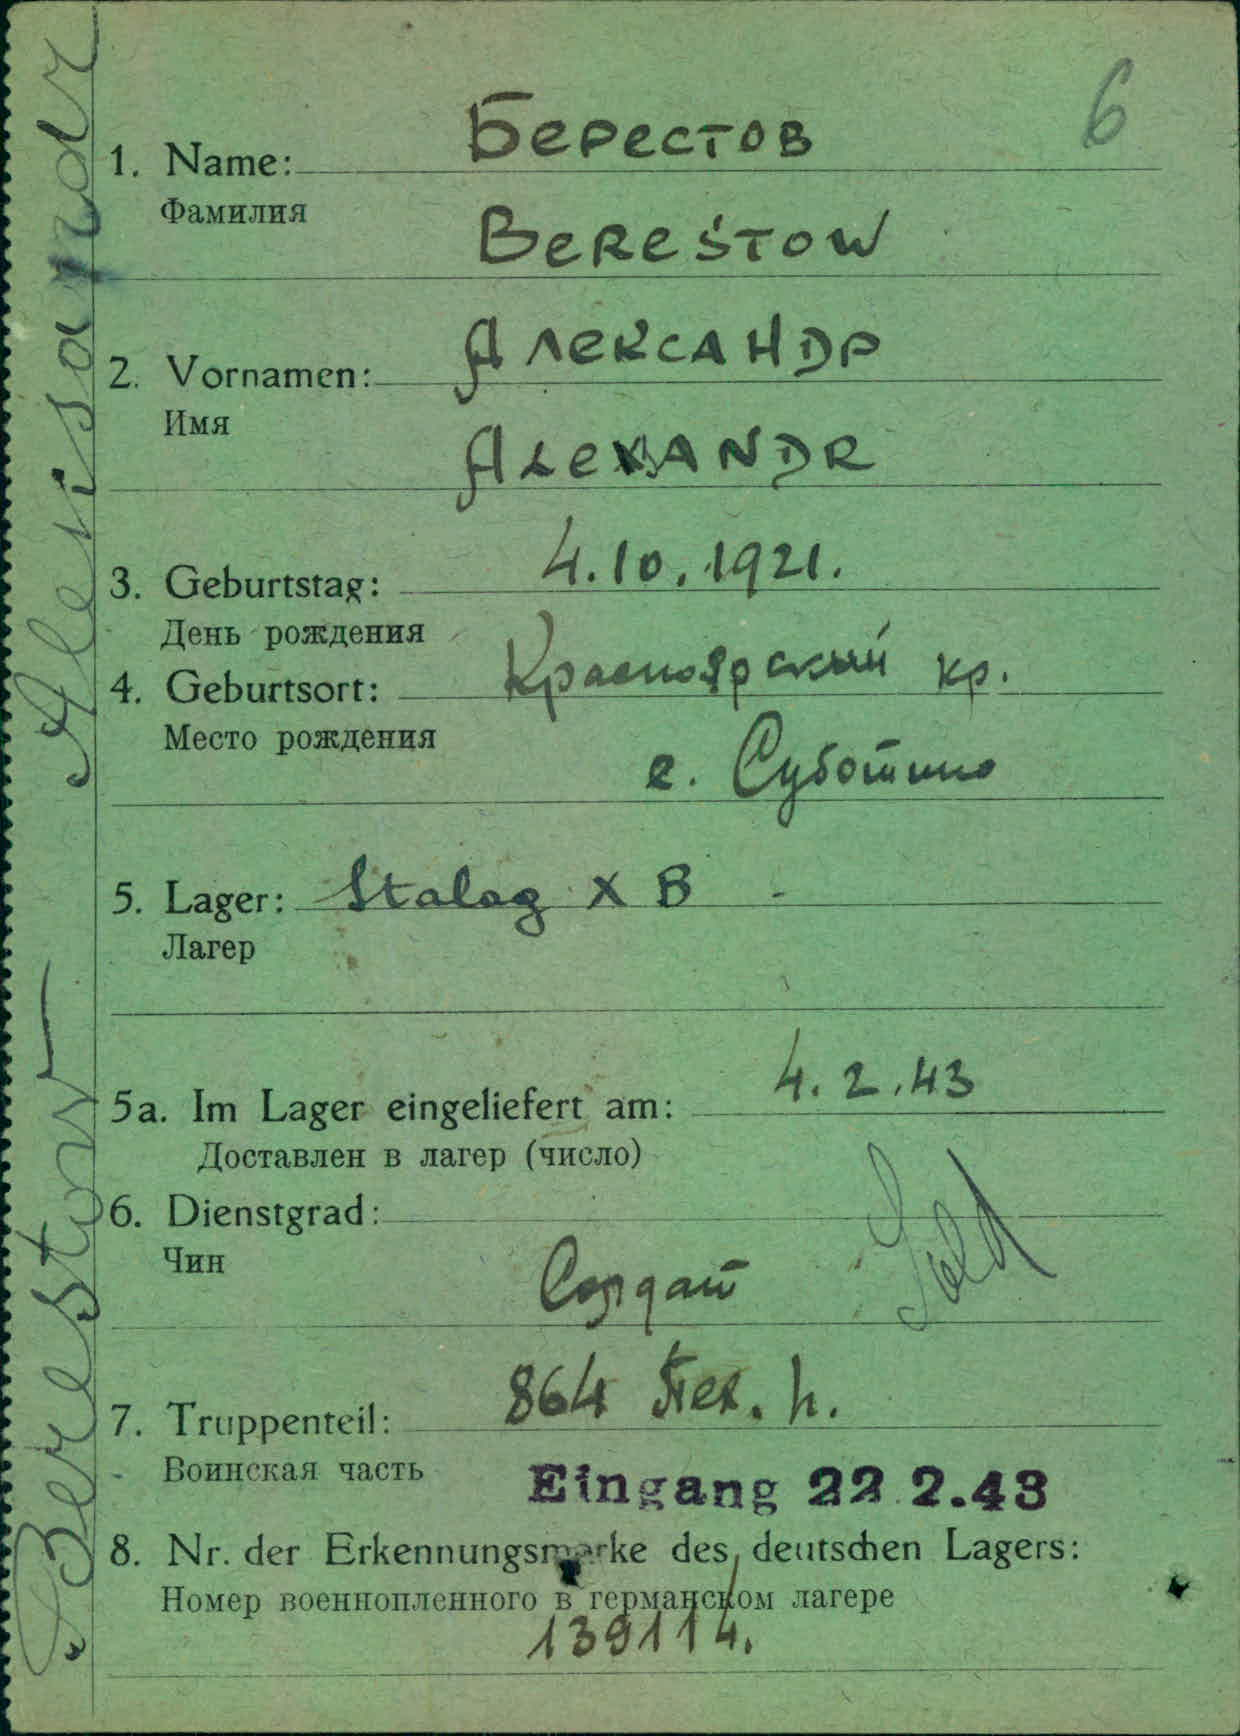 6
Берестов
1. Name:
Фамилия
Berestow
Александр
2. Vornamen:
Имя
Alexandr
4.10.1921.
3. Geburtstag:
День рождения
Красноярский кр.
4. Geburtsort:
Место рождения
г. Суботино
5. Lager: Stalag X B
Лагер
5a. Im Lager eingeliefert am: 4.2.43
Доставлен в лагер (число)
6. Dienstgrad:
Чин
Солдат Sold
7. Truppenteil: 864
Воинская часть
Eingang 22.2.43
8. Nr. der Erkennungsmarke des deutschen Lagers:
Номер военнопленного в германском лагере
139114.
Berestow Alexsandr